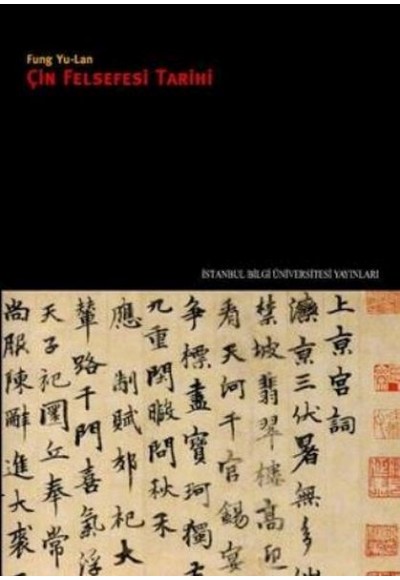 Fung Yu-Lan
ÇİN FELSEFESİ TARİHİ
İSTANBUL BİLGİ ÜNİVERSİTESİ YAYINLARI
上亰宮詞
灤亰三伏暑無多
禁坡翡翠樓高迎
看天河千官錫宴
争標盡寶珂獨
九重閑暇問秋禾
應制賦郊祀大
輦路千門喜氣浮
天子祀圜丘奉常
尚服陳辭進大裘